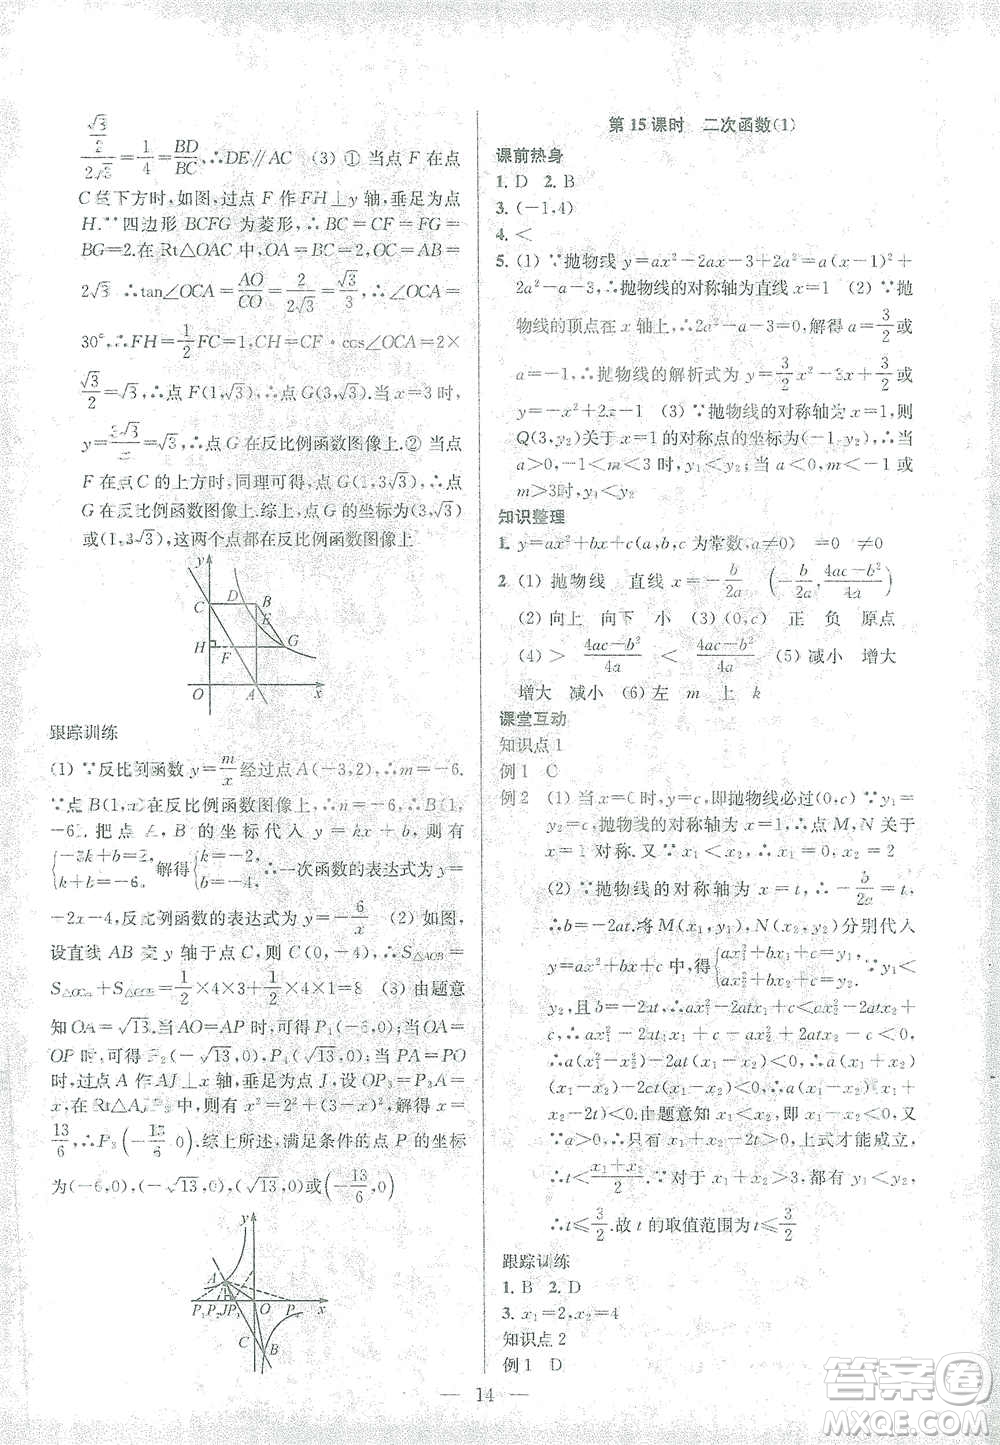 √3/2 / 2√3 = 1/4 = BD/BC, ∴DE∥AC (3) ① 当点 F 在点
C 下方时,如图,过点 F 作 FH⊥y 轴,垂足为点
H. ∵四边形 BCFG 为菱形,∴BC=CF=FG=
BG=2.在 Rt△OAC 中,OA=BC=2,OC=AB=
2√3 ∴tan∠OCA=AO/CO=2/2√3=√3/3,∴∠OCA=
30°,∴FH=1/2FC=1,CH=CF·cos∠OCA=2×
√3/2=√3,∴点 F(1,√3),∴点 G(3,√3).当 x=3 时,
y=3√3/3=√3,∴点 G 在反比例函数图像上.② 当点
F 在点 C 的上方时,同理可得,点 G(1,3√3),∴点
G 在反比例函数图像上.综上,点 G 的坐标为(3,√3)
或(1,3√3),这两个点都在反比例函数图像上
y
C D B
E
H F G
O A x
跟踪训练
(1) ∵反比例函数 y=m/x 经过点 A(-3,2),∴m=-6.
∵点 B(1,n)在反比例函数图像上,∴n=-6.∴B(1,
-6).把点 A,B 的坐标代入 y=kx+b,则有
{-3k+b=2, k+b=-6, 解得{ ∴一次函数的表达式为 y=
-2x-4,反比例函数的表达式为 y=-6/x (2) 如图,
设直线 AB 交 y 轴于点 C,则 C(0,-4),∴S△AOB=
S△OCA+S△OCB=1/2×4×3+1/2×4×1=8 (3) 由题意
知 OA=√13.当 AO=AP 时,可得 P₁(-6,0);当 OA=
OP 时,可得 P₂(-√13,0),P₄(√13,0);当 PA=PO
时,过点 A 作 AJ⊥x 轴,垂足为点 J,设 OP₃=P₃A=
x,在 Rt△AJP₃中,则有 x²=2²+(3-x)²,解得 x=
13/6,∴P₃(-13/6,0).综上所述,满足条件的点 P 的坐标
为(-6,0),(-√13,0),(√13,0)或(-13/6,0)
y
A
P₁ P₂ J P₃ O P₄ x
C
B
第 15 课时 二次函数(1)
课前热身
1. D 2. B
3. (-1,4)
4. <
5. (1) ∵抛物线 y=ax²-2ax-3+2a²=a(x-1)²+
2a²-a-3,∴抛物线的对称轴为直线 x=1 (2) ∵抛
物线的顶点在 x 轴上,∴2a²-a-3=0,解得 a=3/2 或
a=-1,∴抛物线的解析式为 y=3/2x²-3x+3/2或
y=-x²+2x-1 (3) ∵抛物线的对称轴为 x=1,则
Q(3,y₂)关于 x=1 的对称点的坐标为(-1,y₂),∴当
a>0,-1<m<3 时,y₁<y₂;当 a<0,m<-1 或
m>3 时,y₁<y₂
知识整理
1. y=ax²+bx+c(a,b,c 为常数,a≠0) =0 ≠0
2. (1) 抛物线 直线 x=-b/2a (-b/2a,(4ac-b²)/4a)
(2) 向上 向下 小 (3) (0,c) 正 负 原点
(4) > (4ac-b²)/4a < (4ac-b²)/4a (5) 减小 增大
增大 减小 (6) 左 m 上 k
课堂互动
知识点 1
例 1 C
例 2 (1) 当 x=0 时,y=c,即抛物线必过(0,c) ∵
y₁=y₂=c,抛物线的对称轴为 x=1,∴点 M,N 关于
x=1 对称.又∵x₁<x₂,∴x₁=0,x₂=2
(2) ∵抛物线的对称轴为 x=t,∴-b/2a=t,
∴b=-2at.将 M(x₁,y₁),N(x₂,y₂)分别代入
y=ax²+bx+c 中,得{ax₁²+bx₁+c=y₁, ax₂²+bx₂+c=y₂, ∵y₁<
y₂,且 b=-2at,∴ax₁²-2atx₁+c<ax₂²-2atx₂+
c,∴ax₁²-2atx₁+c-ax₂²+2atx₂-c<0,
∴a(x₁²-x₂²)-2at(x₁-x₂)<0,∴a(x₁+x₂)
(x₁-x₂)-2at(x₁-x₂)<0,∴a(x₁-x₂)(x₁+
x₂-2t)<0.由题意知 x₁<x₂,即 x₁-x₂<0,又
∵a>0,∴只有 x₁+x₂-2t>0 时,上式才能成立,
∴t<(x₁+x₂)/2.∵对于 x₁+x₂>3,都有 y₁<y₂,
∴t≤3/2.故 t 的取值范围为 t≤3/2
跟踪训练
1. B 2. D
3. x₁=2,x₂=4
知识点 2
例 1 D
— 14 —
答案圈
MXQE.COM